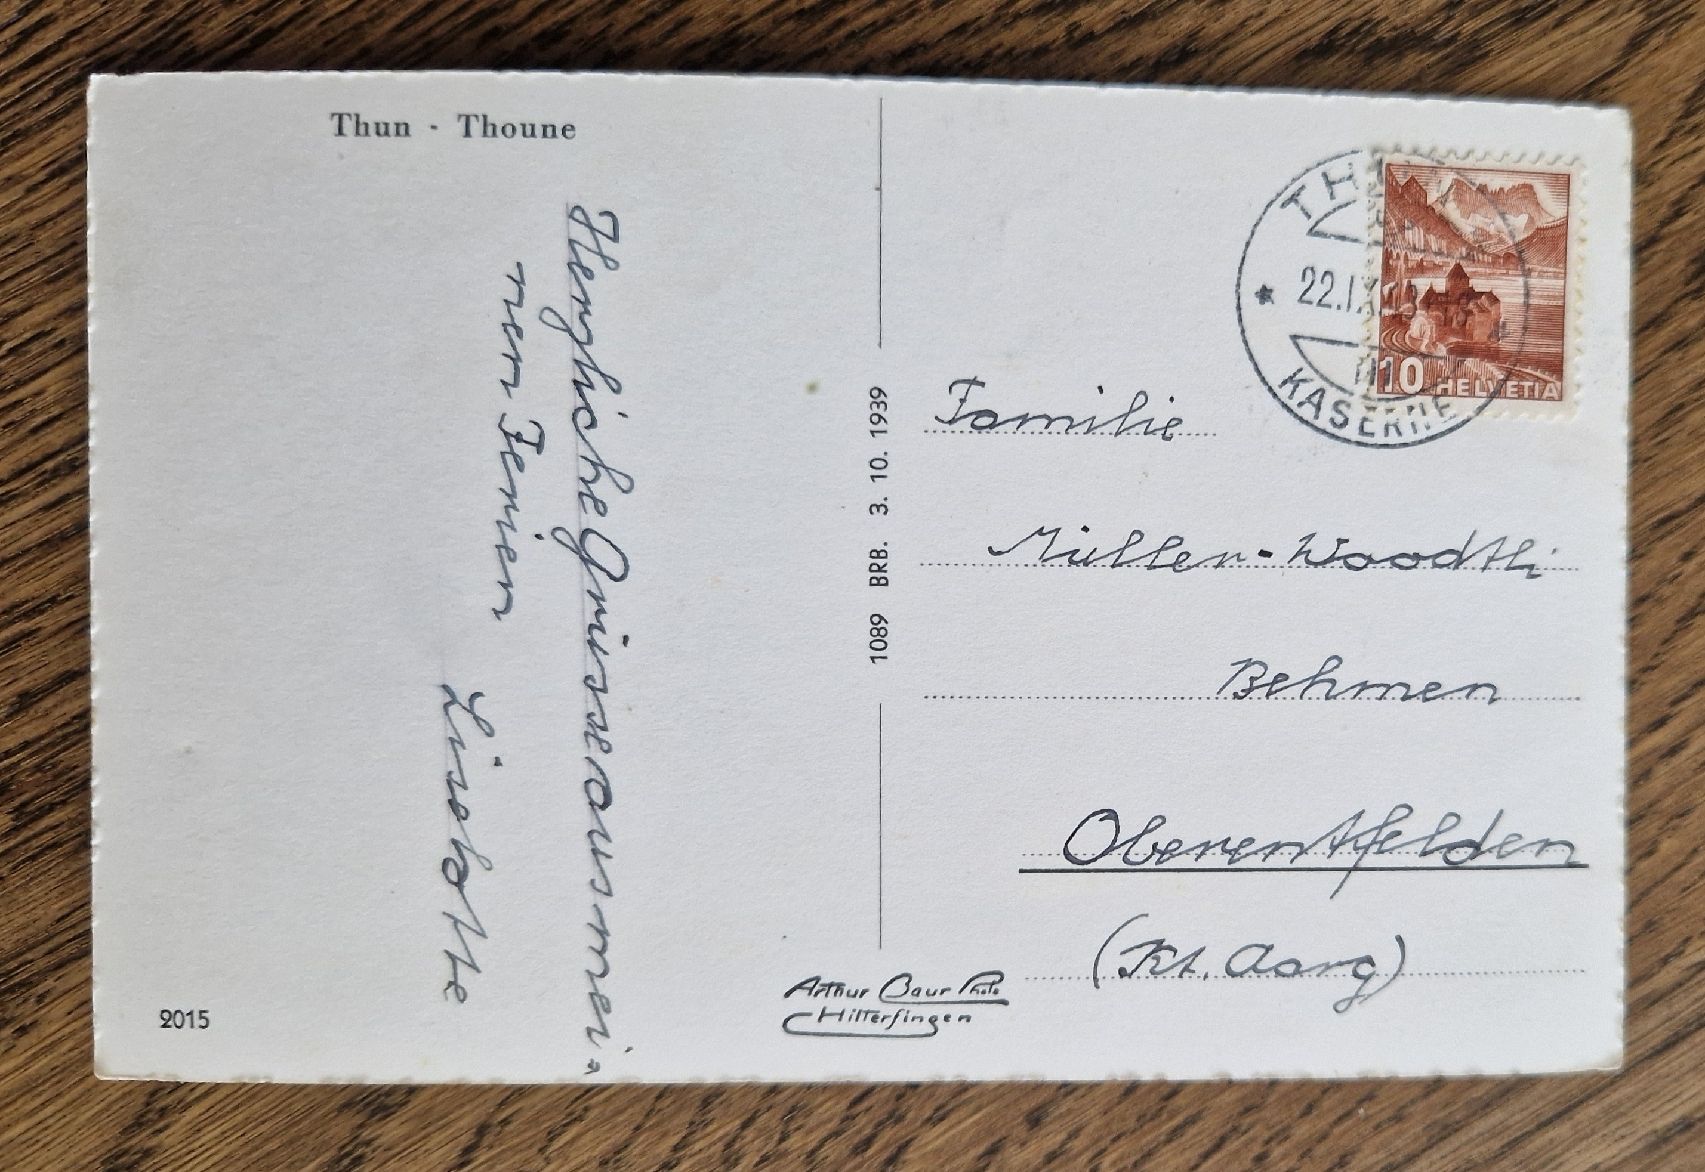 Thun - Thoune
Herzliche Grüsse aus mei=
nen Ferien
Liselotte
2015
1089 BRB. 3. 10. 1939
Arthur Baur Photo
Hilterfingen
THUN
22.IX.
KASERNE
10 HELVETIA
Familie
Müller-Woodtli
Behmen
Oberentfelden
(Kt. Aarg)